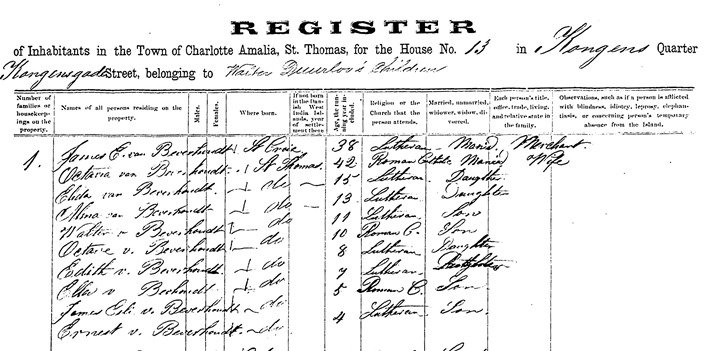 REGISTER
of Inhabitants in the Town of Charlotte Amalia, St. Thomas, for the House No. 13 in Kongens Quarter
Kongensgade Street, belonging to Children
Number of families or housekeepings on the property. Names of all persons residing on the property. Males. Females. Where born. If not born in the Danish West India Islands, year of settlement there Age, the running year included. Religion or the Church that the person attends. Married, unmarried, widower, widow, divorced. Each person's title, office, trade, living, and relative state in the family. Observations, such as if a person is afflicted with blindness, idiotcy, leprosy, elephantiasis, or concerning person's temporary absence from the Island.
1. James E. van Beverhoudt St Croix 38 Lutheran Married Merchant
Octavia van Beverhoudt St Thomas 42 Roman Cathol. Married Wife
Elida van Beverhoudt do 15 Lutheran Daughter
Alma van Beverhoudt do 13 Lutheran Daughter
Walter v Beverhoudt do 11 Lutheran Son
Octave v. Beverhoudt do 10 Roman C. Son
Edith v. Beverhoudt do 8 Lutheran Daughter
Ellen v Beverhoudt do 7 Lutheran
James Esli v. Beverhoudt do 5 Roman C. Son
Ernest v. Beverhoudt do 4 Lutheran Son